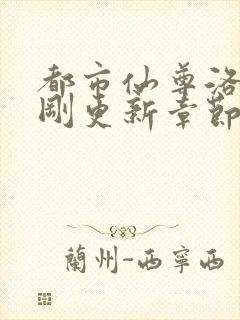 都市仙尊洛
刚更新章節
蘭州-西寧西